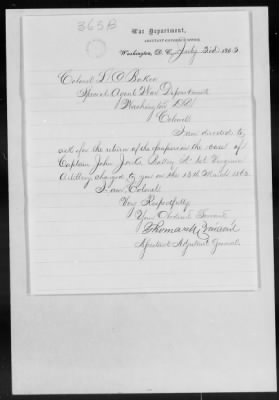 365B
War Department,
ADJUTANT GENERAL'S OFFICE,
Washington, D. C., July 23d 1863.
Colonel L. C. Baker
Special Agent War Department
Washington D.C.
Colonel
I am directed to
ask for the return of the papers in the case of
Captain John Battery 1st Virginia
Artillery charged to you on the March 1863.
I am Colonel
Very Respectfully
Your Obedient Servant
Thomas M. Vincent
Assistant Adjutant General